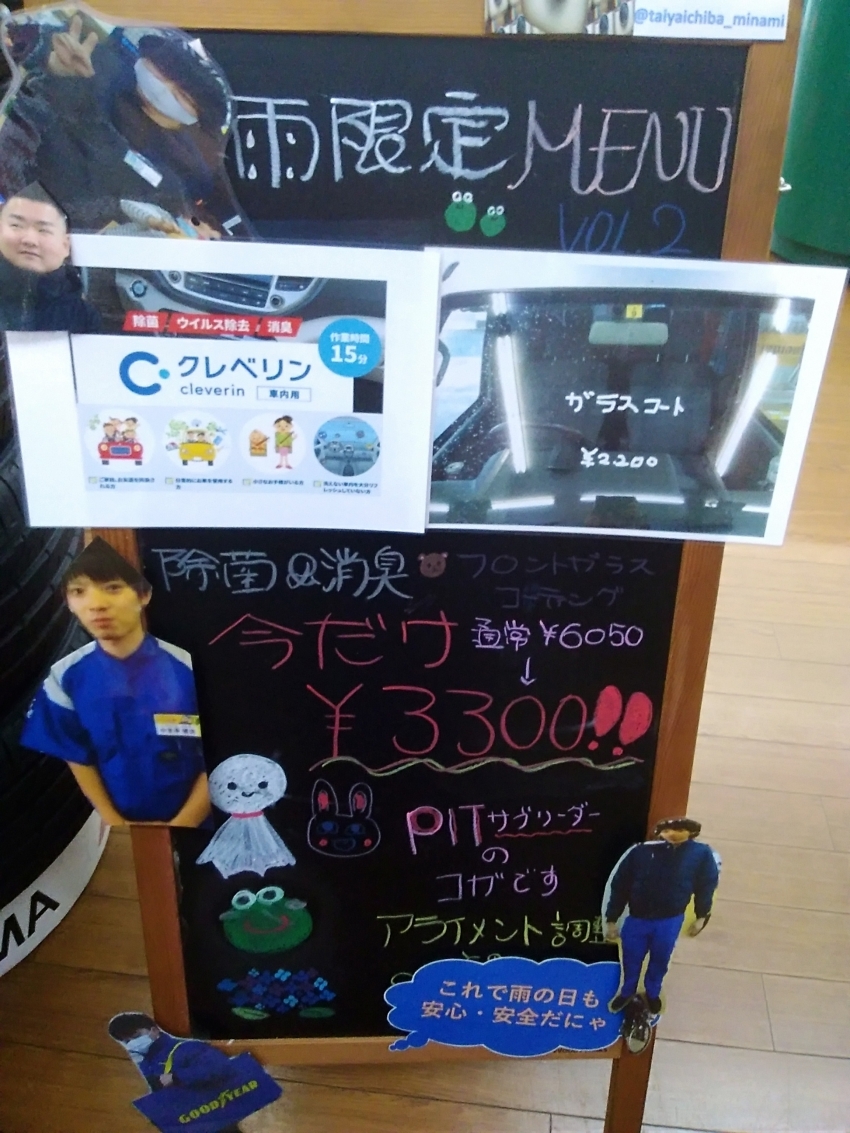 @taiyaichiba_minami
雨限定MENU
VOL.2
除菌 ウイルス除去 消臭
作業時間
15分
クレベリン
cleverin 車内用
ガラスコート
¥2200
除菌&消臭
フロントガラス
コーティング
今だけ 通常¥6050
↓
¥3300!!
PITサブリーダー
の
コガです
アライメント調整
これで雨の日も
安心・安全だにゃ
GOODYEAR
MA